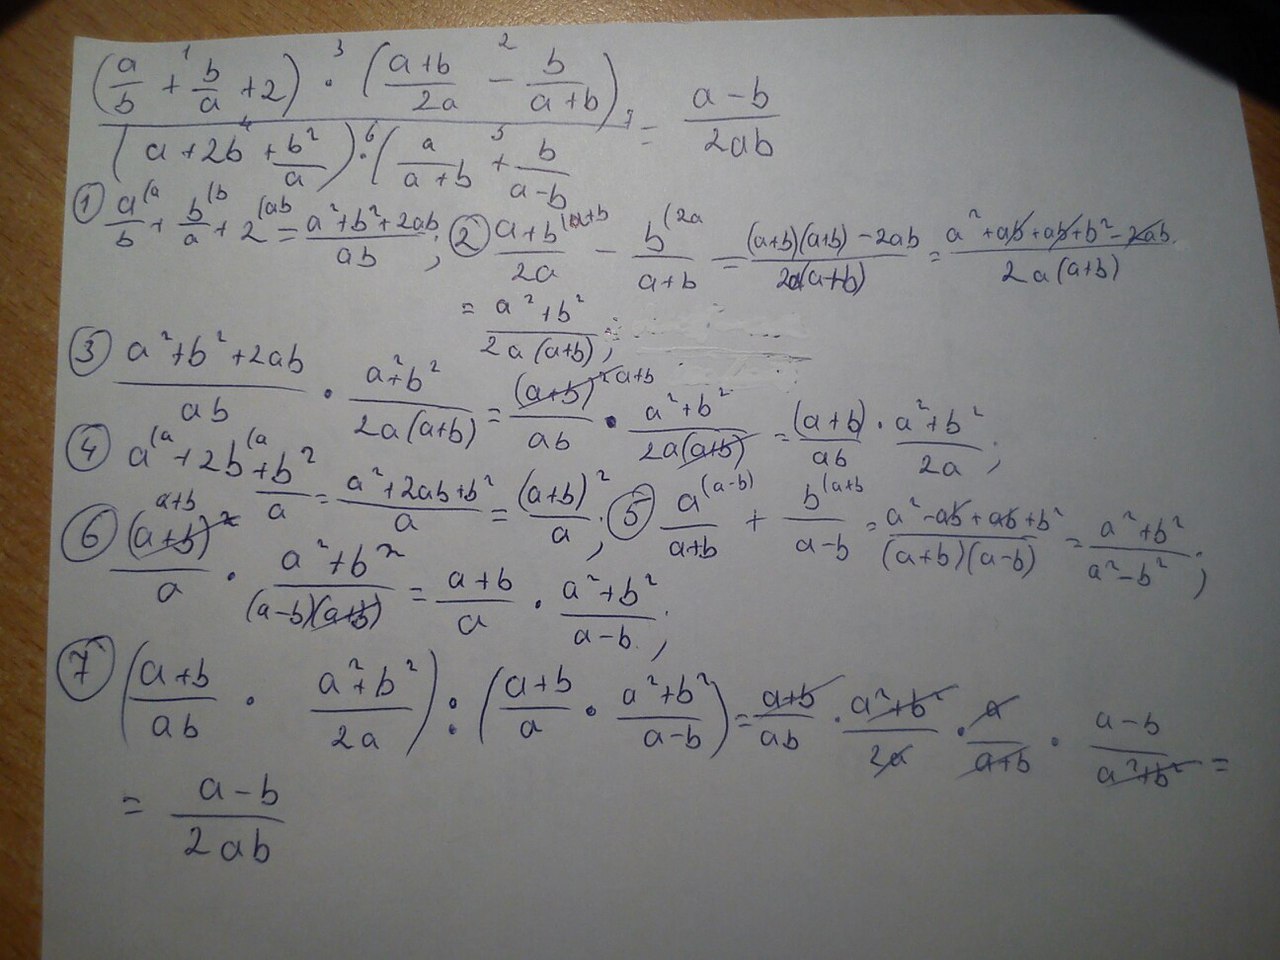 (a/b +¹ b/a + 2) ·³ ((a+b)/2a −² b/(a+b)) ⁷ = (a−b)/2ab
(a + 2b +⁴ b²/a) ·⁶ (a/(a+b) +⁵ b/(a−b)
① a/b (a + b/a (b + 2 (ab = (a²+b²+2ab)/ab ; ② (a+b)/2a (a+b − b/(a+b) (2a = ((a+b)(a+b) − 2ab)/2a(a+b) = (a²+ab+ab+b²−2ab)/2a(a+b)
= (a²+b²)/2a(a+b) ;
③ (a²+b²+2ab)/ab · (a²+b²)/2a(a+b) = (a+b)² a+b/ab · (a²+b²)/2a(a+b) = (a+b)/ab · (a²+b²)/2a ;
④ a (a + 2b (a + b²/a = (a²+2ab+b²)/a = (a+b)²/a ; ⑤ a/(a+b) (a−b) + b/(a−b) (a+b = (a²−ab+ab+b²)/(a+b)(a−b) = (a²+b²)/(a²−b²) ;
⑥ a+b (a+b)²/a · (a²+b²)/(a−b)(a+b) = (a+b)/a · (a²+b²)/(a−b) ;
⑦ ((a+b)/ab · (a²+b²)/2a) : ((a+b)/a · (a²+b²)/(a−b)) = (a+b)/ab · (a²+b²)/2a · a/(a+b) · (a−b)/(a²+b²) =
= (a−b)/2ab